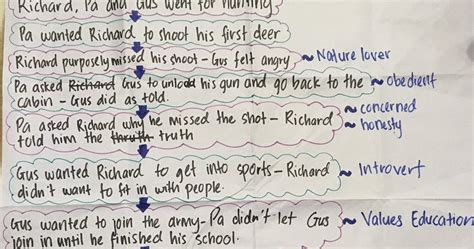 Richard, Pa and Gus went for hunting
Pa wanted Richard to shoot his first deer
Richard purposely missed his shoot - Gus felt angry ~ Nature lover
Pa asked Richard Gus to unload his gun and go back to the ~ obedient
cabin - Gus did as told.
~ concerned
Pa asked Richard why he missed the shot - Richard ~ honesty
told him the thruth truth
Gus wanted Richard to get into sports - Richard ~ Introvert
didn't want to fit in with people.
Gus wanted to join the army - Pa didn't let Gus ~ Values Education
join in until he finished his school.